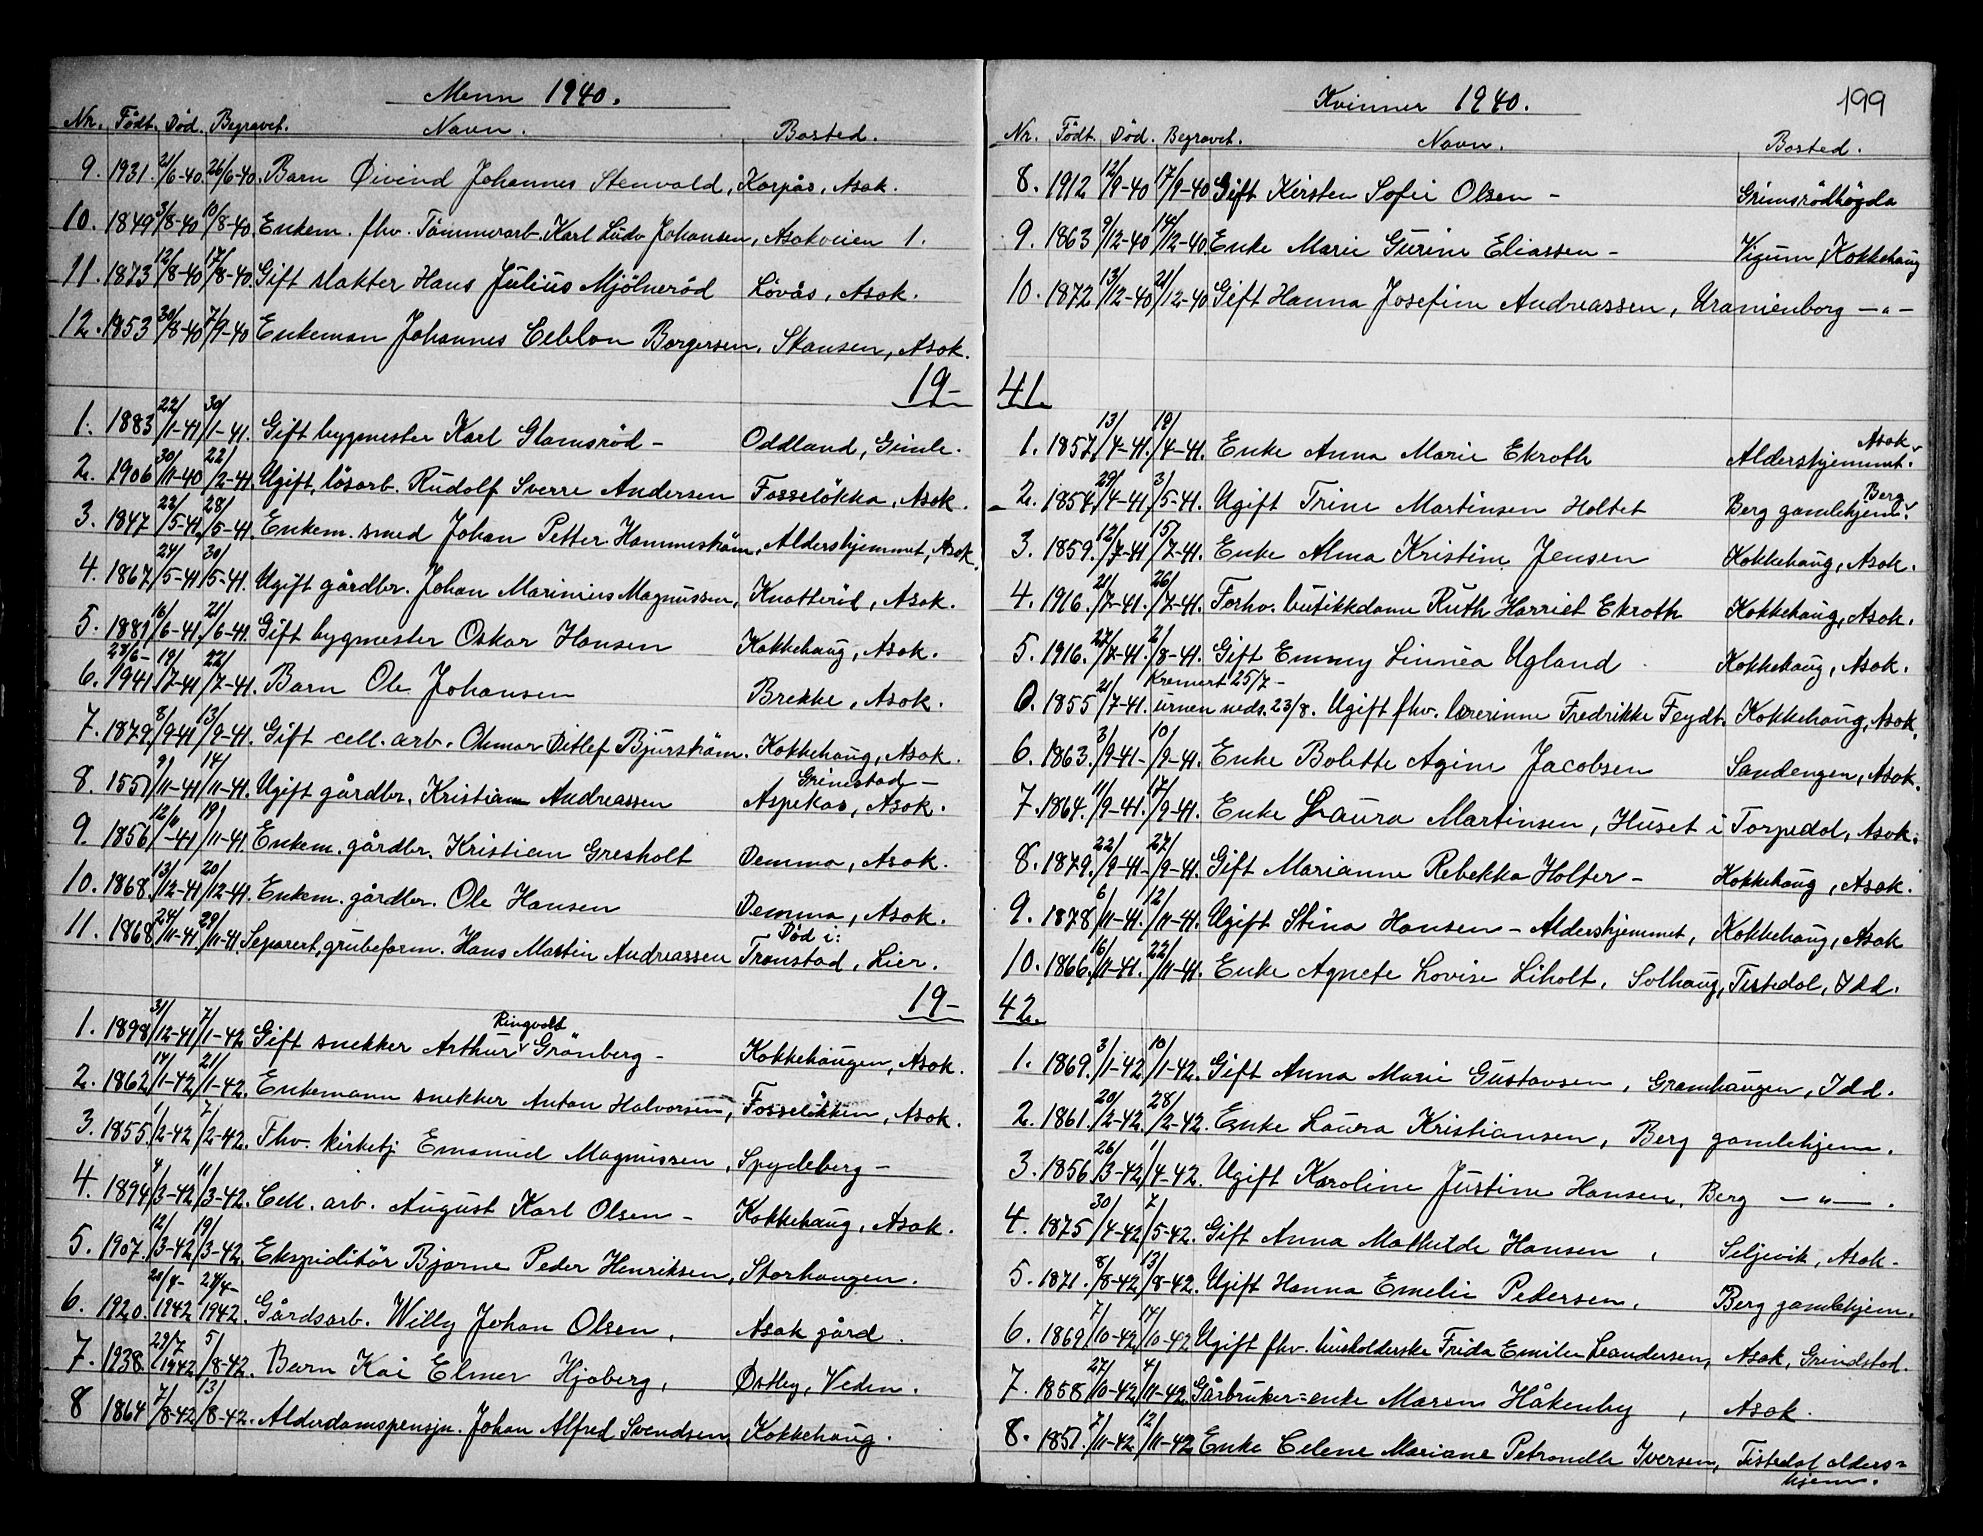 Menn 1940.
Nr. Født. Død. Begravet. Navn. Bosted.
9. 1931. 21/6-40. 26/6-40. Barn Øivind Johannes Stenvold, Korpås, Asak.
10. 1849 3/8-40 10/8-40. Enkem. fhv. Tømmerarb. Karl Ludv Johansen, Asakveien 1.
11. 1873 12/8-40 17/8-40. Gift slakter Hans Julius Mjølnerød Løvås, Asak.
12. 1853 30/8-40 7/9-40 Enkeman Johannes Borgersen, Skansen, Asak.
19-
1. 1883 22/1-41 30/1-41. Gift bygmester Karl Glomsrød - Oddland, Gimle.
2. 1906 30/11-40 22/2-41. Ugift, løsarb. Rudolf Sverre Andersen Fosseløkka, Asak.
3. 1847 22/5-41. 28/5-41. Enkem. smed Johan Petter Hammerstrøm, Aldershjemmet, Asak.
4. 1867 24/5-41 30/5-41. Ugift gårdbr. Johan Marinius Magnussen, Knatterød, Asak.
5. 1881 16/6-41. 21/6-41. Gift bygmester Oskar Hansen Kokkehaug, Asak.
6. 28/6-1941 19/7-41 22/7-41. Barn Ole Johansen Brekke, Asak.
7. 1879. 8/9-41 13/9-41. Gift cell. arb. Otmar Ditlef Bjurstrøm. Kokkehaug, Asak.
8. 1851 9/11-41 14/11-41. Ugift gårdbr. Kristian Andreassen Grimstad - Aspekas, Asak.
9. 1856 12/11-41 19/11-41. Enkem. gårdbr. Kristian Gresholt Demma, Asak.
10. 1868. 13/12-41 20/12-41. Enkem. gårdbr. Ole Hansen Demma, Asak.
11. 1868 24/11-41 29/11-41. Separert, grubeform. Hans Martin Andreassen Død i: Transtad, Lier.
19-
1. 1898 31/12-41 7/1-42 Gift snekker Arthur Ringvolt Grönberg - Kokkehaugen, Asak.
2. 1862 14/1-42 21/1-42. Enkemann snekker Anton Halvorsen, Fosseløkken, Asak.
3. 1855. 1/2-42 7/2-42. Fhv. kirketj Emanuel Magnussen, Spydeberg -
4. 1894 4/3-42 11/3-42. Cell. arb. August Karl Olsen - Kokkehaug, Asak.
5. 1907. 12/3-42 19/3-42. Ekspiditör Bjarne Peder Henriksen, Storhaugen.
6. 1920. 20/4-1942 24/4-1942. Gårdsarb. Willy Johan Olsen, Asak gård.
7. 1938 29/7 1942 5/8-42. Barn Kai Elmer Hjøberg, Østby, Veden.
8 1864 7/8-42 13/8-42. Alderdomspensjn. Johan Alfred Svendsen, Kokkehaug.
199
Kvinner 1940.
Nr. Født. Død. Begravet. Navn. Bosted.
8. 1912 12/9-40 17/9-40 Gift Kirsten Sofie Olsen - Grimsrödhögda
9. 1863 9/12-40 14/12-40. Enke Marie Gurine Eliassen - Vigum, Kokkehaug
10. 1872 13/12-40 21/12-40 Gift Hanna Josefine Andreassen, Uranienborg -"-
41.
1. 1857. 13/4-41. 19/4-41. Enke Anna Marie Ekroth Aldershjemmet. Asak
2. 1854. 29/4-41. 3/5-41. Ugift Trine Martinsen Holtet Berg gamlehjem. Berg
3. 1859. 12/7-41 15/7-41. Enke Alma Kristine Jensen Kokkehaug, Asak.
4. 1916. 21/7-41. 26/7-41. Forhv. butikkdame Ruth Harriet Ekroth Kokkehaug, Asak.
5. 1916. 27/7-41. 2/8-41. Gift Emmy Linnea Ugland Kokkehaug, Asak.
Kremert 25/7 -
0. 1855 21/7-41. urnen neds. 23/8. Ugift fhv. lærerinne Fredrikke Feydt. Kokkehaug, Asak.
6. 1863. 3/9-41- 10/9-41. Enke Bolette Agine Jacobsen Sandengen, Asak.
7. 1864. 11/9-41. 17/9-41. Enke Laura Martinsen, Huset i Torpedal, Asak.
8. 1879. 22/9-41- 27/9-41. Gift Marianne Rebekka Holter - Kokkehaug, Asak.
9. 1878 6/11-41. 12/11-41. Ugift Stina Hansen - Aldershjemmet, Kokkehaug, Asak
10. 1866. 16/11-41. 22/11-41. Enke Agnete Lovise Liholt, Solhaug, Tistedal, Idd.
42.
1. 1869. 3/1-42 10/1-42. Gift Anna Marie Gustavsen, Granhaugen, Idd.
2. 1861. 20/2-42. 28/2-42. Enke Laura Kristiansen, Berg gamlehjem.
3. 1856 26/3-42 1/4-42. Ugift Karoline Justine Hansen, Berg -"-.
4. 1875 30/4-42 7/5-42. Gift Anna Mathilde Hansen, Seljevik, Asak.
5. 1871. 8/8-42 13/8-42. Ugift Hanna Emelie Pedersen, Berg gamlehjem.
6. 1869 7/10-42 14/10-42 Ugift fhv. husholderske Frida Emilie Leandersen, Asak, Grindstad.
7. 1858 27/10-42 4/11-42. Gårbruker=enke Maren Håkenby, Asak.
8. 1851. 7/11-42 12/11-42 Enke Celene Mariane Petronelle Iversen, Tistedal alders=
hjem.